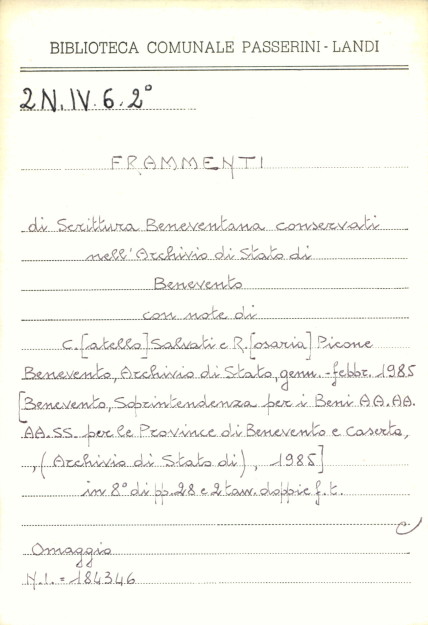 BIBLIOTECA COMUNALE PASSERINI - LANDI
2N.IV.6.2°
FRAMMENTI
di Scrittura Beneventana conservati
nell'Archivio di Stato di
Benevento
con note di
C.[atello] Salvati e R.[osaria] Picone
Benevento, Archivio di Stato, genn.-febbr. 1985
[Benevento, Soprintendenza per i Beni AA.AA.
AA.SS. per le Province di Benevento e Caserta,
, (Archivio di Stato di), 1985]
in 8° di pp. 28 e 2 tav. doppie f.t.
C
Omaggio
N.I. = 184346